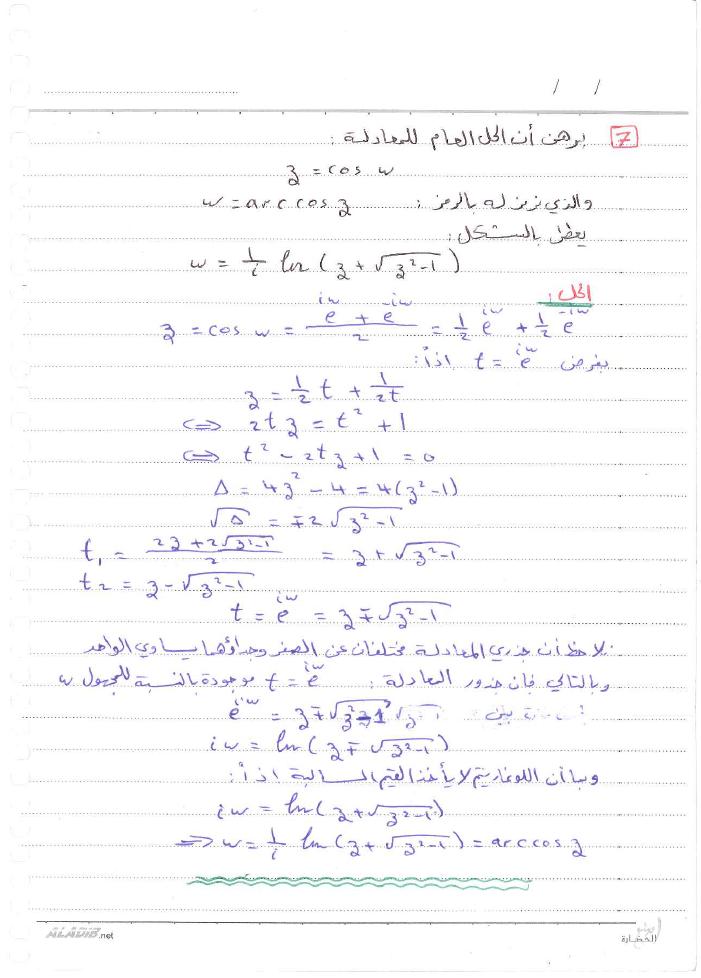 / /
7 برهن أن الحل العام للمعادلة :
z = cos w
والذي نرمز له بالرمز : w = arc cos z
يعطى بالشكل :
w = 1/i ln ( z + √(z²-1) )
الحل :
z = cos w = (e^{iw} + e^{-iw})/2 = 1/2 e^{iw} + 1/2 e^{-iw}
بفرض t = e^{iw} اذاً :
z = 1/2 t + 1/(2t)
⇔ 2tz = t² + 1
⇔ t² - 2tz + 1 = 0
Δ = 4z² - 4 = 4(z²-1)
√Δ = ∓2 √(z²-1)
t₁ = (2z + 2√(z²-1))/2 = z + √(z²-1)
t₂ = z - √(z²-1)
t = e^{iw} = z ∓ √(z²-1)
نلاحظ أن جذري المعادلة مختلفان عن الصفر وجداؤهما يساوي الواحد
وبالتالي فإن جذور المعادلة : t = e^{iw} موجودة بالنسبة للمجهول w
e^{iw} = z ∓ √(z²-1)
iw = ln( z ∓ √(z²-1) )
وبما أن اللوغاريتم لا يأخذ القيم السالبة اذاً :
iw = ln( z + √(z²-1) )
⇒ w = 1/i ln ( z + √(z²-1) ) = arc cos z
ALADIB.net
الحضارة